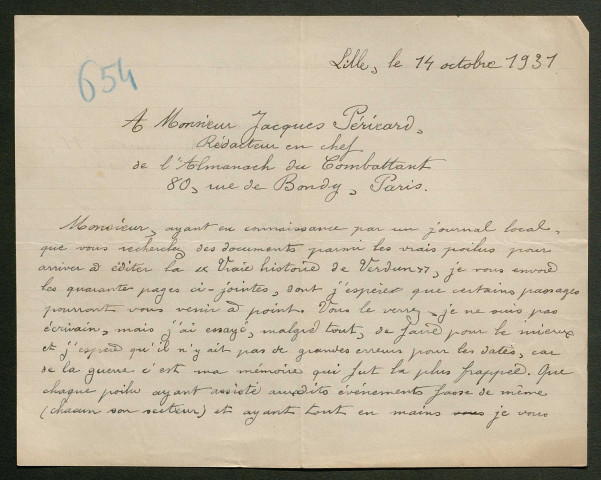 Lille, le 14 octobre 1931
654
A Monsieur Jacques Péricard,
Rédacteur en chef
de l'Almanach du Combattant
80, rue de Bondy, Paris.
Monsieur, ayant eu connaissance par un journal local,
que vous recherchez des documents parmi les vrais poilus pour
arriver à éditer la "Vraie histoire de Verdun", je vous envoie
les quarante pages ci-jointes, dont j'espère que certains passages
pourront vous venir à point. Vous le verrez, je ne suis pas
écrivain, mais j'ai essayé, malgré tout, de faire pour le mieux
et j'espère qu'il n'y ait pas de grandes erreurs pour les dates, car
de la guerre c'est ma mémoire qui fut la plus frappée. Que
chaque poilu ayant assisté auxdits événements fasse de même
(chacun son secteur) et ayant tout en mains vous je vous